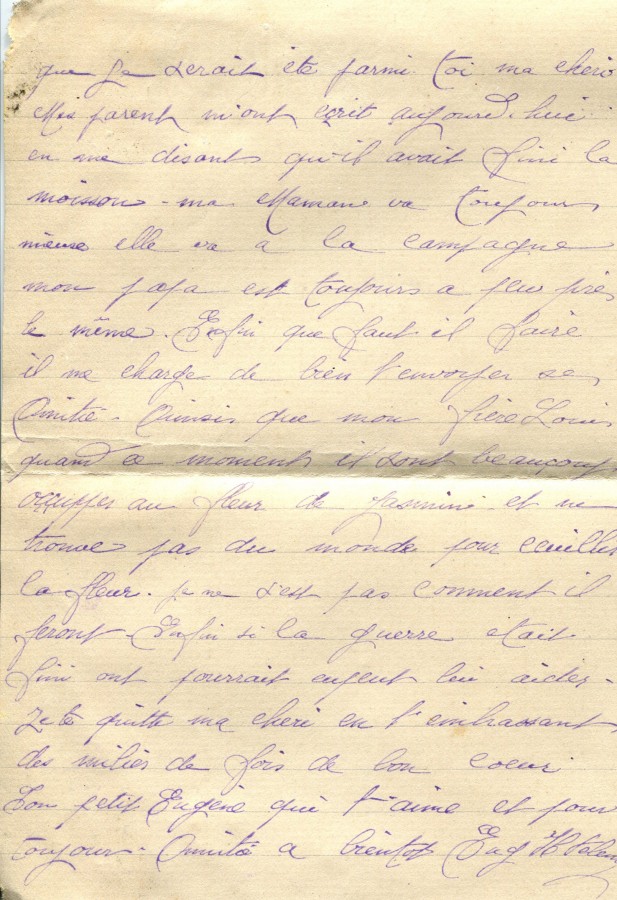 que Je serait été parmi toi ma cheri
Mes parent m'ont ecrit aujourd'hui
en me disant qu'il avait fini la
moisson - ma Maman va toujours
mieuse elle va a la campagne
mon papa est toujours a peu près
le même. Enfin que faut-il faire
il me charge de bien t'envoyer ses
Amitié - Ainsis que mon frère Louis
quand ce moments il sont beaucoup
occupper au fleur de Jasmins et ne
trouve pas du monde pour cueillir
la fleur. je ne s'est pas comment il
feront - Enfin si la guerre était
fini ont pourrait leu aider -
Je te quitte ma cheri en t'embrassant
des miliés de fois de bon coeur
Ton petit Eugène qui t'aime et pour
toujours - Amitié a bientot Eug